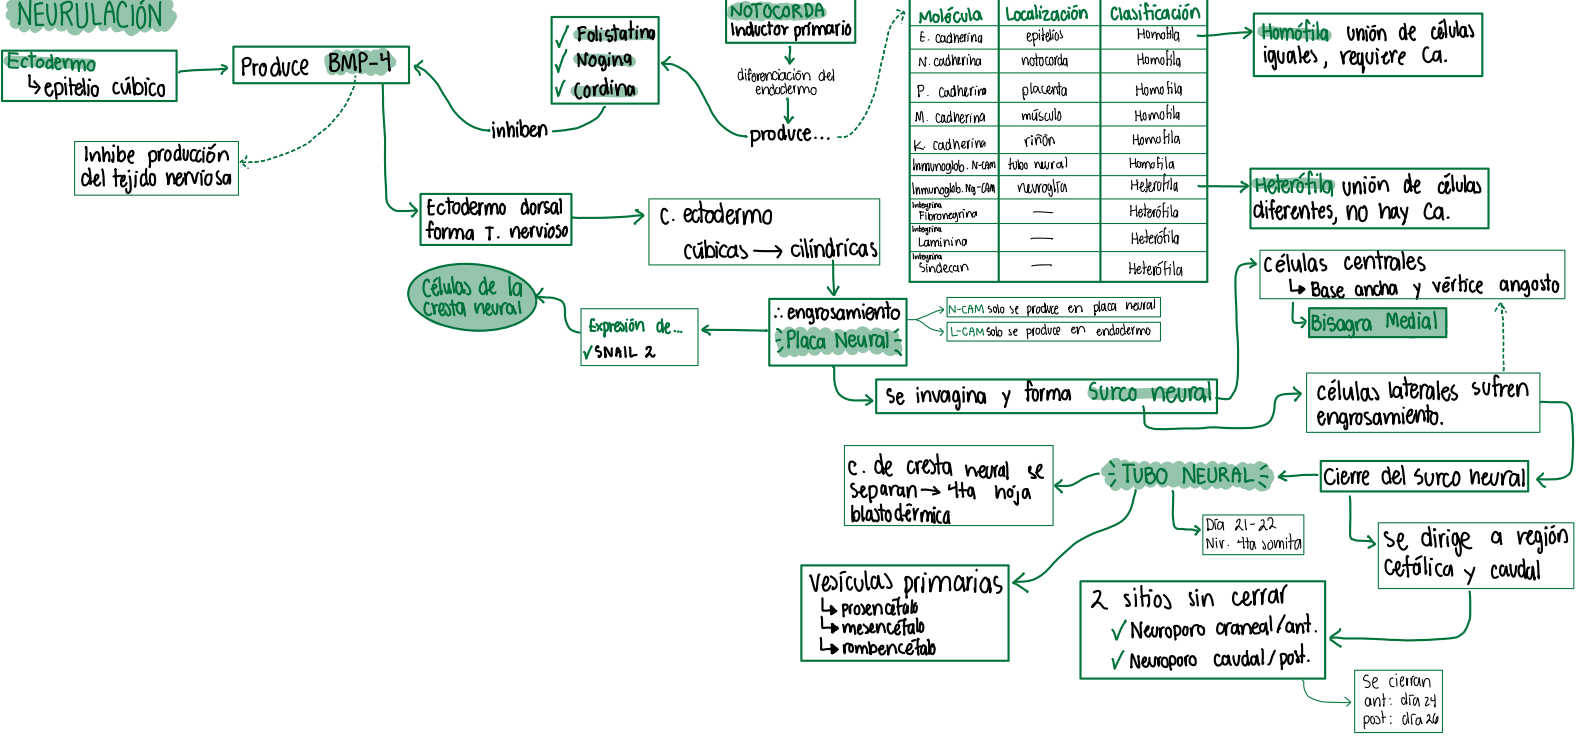 NEURULACIÓN
Ectodermo
↳ epitelio cúbico
Produce BMP-4
Inhibe producción
del tejido nerviosa
✓ Folistatina
✓ Nogina
✓ Cordina
inhiben
NOTOCORDA
Inductor primario
diferenciación del
endodermo
produce...
Molécula Localización Clasificación
E. cadherina epitelios Homofila
N. cadherina notocorda Homofila
P. cadherina placenta Homofila
M. cadherina músculo Homofila
K. cadherina riñón Homofila
Inmunoglob. N-CAM tubo neural Homofila
Inmunoglob. Ng-CAM neuroglia Heterofila
Integrina
Fibronegrina — Heterófila
Integrina
Laminina — Heterófila
Integrina
Sindecan — Heterófila
Homófila unión de células
iguales, requiere Ca.
Heterófila unión de células
diferentes, no hay Ca.
Ectodermo dorsal
forma T. nervioso
C. ectodermo
cúbicas → cilíndricas
∴ engrosamiento
Placa Neural
N-CAM solo se produce en placa neural
L-CAM solo se produce en endodermo
Expresión de...
✓ SNAIL 2
Células de la
cresta neural
Se invagina y forma surco neural
Células centrales
↳ Base ancha y vértice angosto
↳ Bisagra Medial
células laterales sufren
engrosamiento.
Cierre del surco neural
TUBO NEURAL
c. de cresta neural se
separan → 4ta hoja
blastodérmica
Día 21-22
Niv. 4ta somita
Se dirige a región
cefálica y caudal
Vesículas primarias
↳ prosencéfalo
↳ mesencéfalo
↳ rombencéfalo
2 sitios sin cerrar
✓ Neuroporo craneal/ant.
✓ Neuroporo caudal/post.
Se cierran
ant: día 24
post: día 26